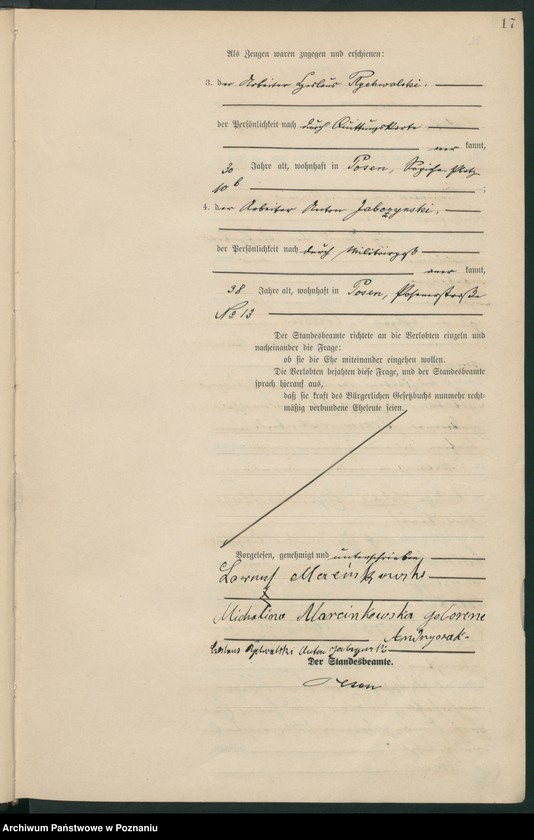 17
Als Zeugen waren zugegen und erschienen:
3. der Arbeiter Rychwalski.
der Persönlichkeit nach durch Quittungskarte
kannt,
30 Jahre alt, wohnhaft in Posen, Platz
10 b ;
4. der Arbeiter Anton
der Persönlichkeit nach durch Militärpaß
kannt,
38 Jahre alt, wohnhaft in Posen,
No 13
Der Standesbeamte richtete an die Verlobten einzeln und
nacheinander die Frage:
ob sie die Ehe miteinander eingehen wollen.
Die Verlobten bejahten diese Frage, und der Standesbeamte
sprach hierauf aus,
daß sie kraft des Bürgerlichen Gesetzbuchs nunmehr recht-
mäßig verbundene Eheleute seien.
Vorgelesen, genehmigt und unterschrieben
Marcinkowski
Michalina Marcinkowska geborene
Andrzyczak
Rychwalski Anton
Der Standesbeamte.
Archiwum Państwowe w Poznaniu